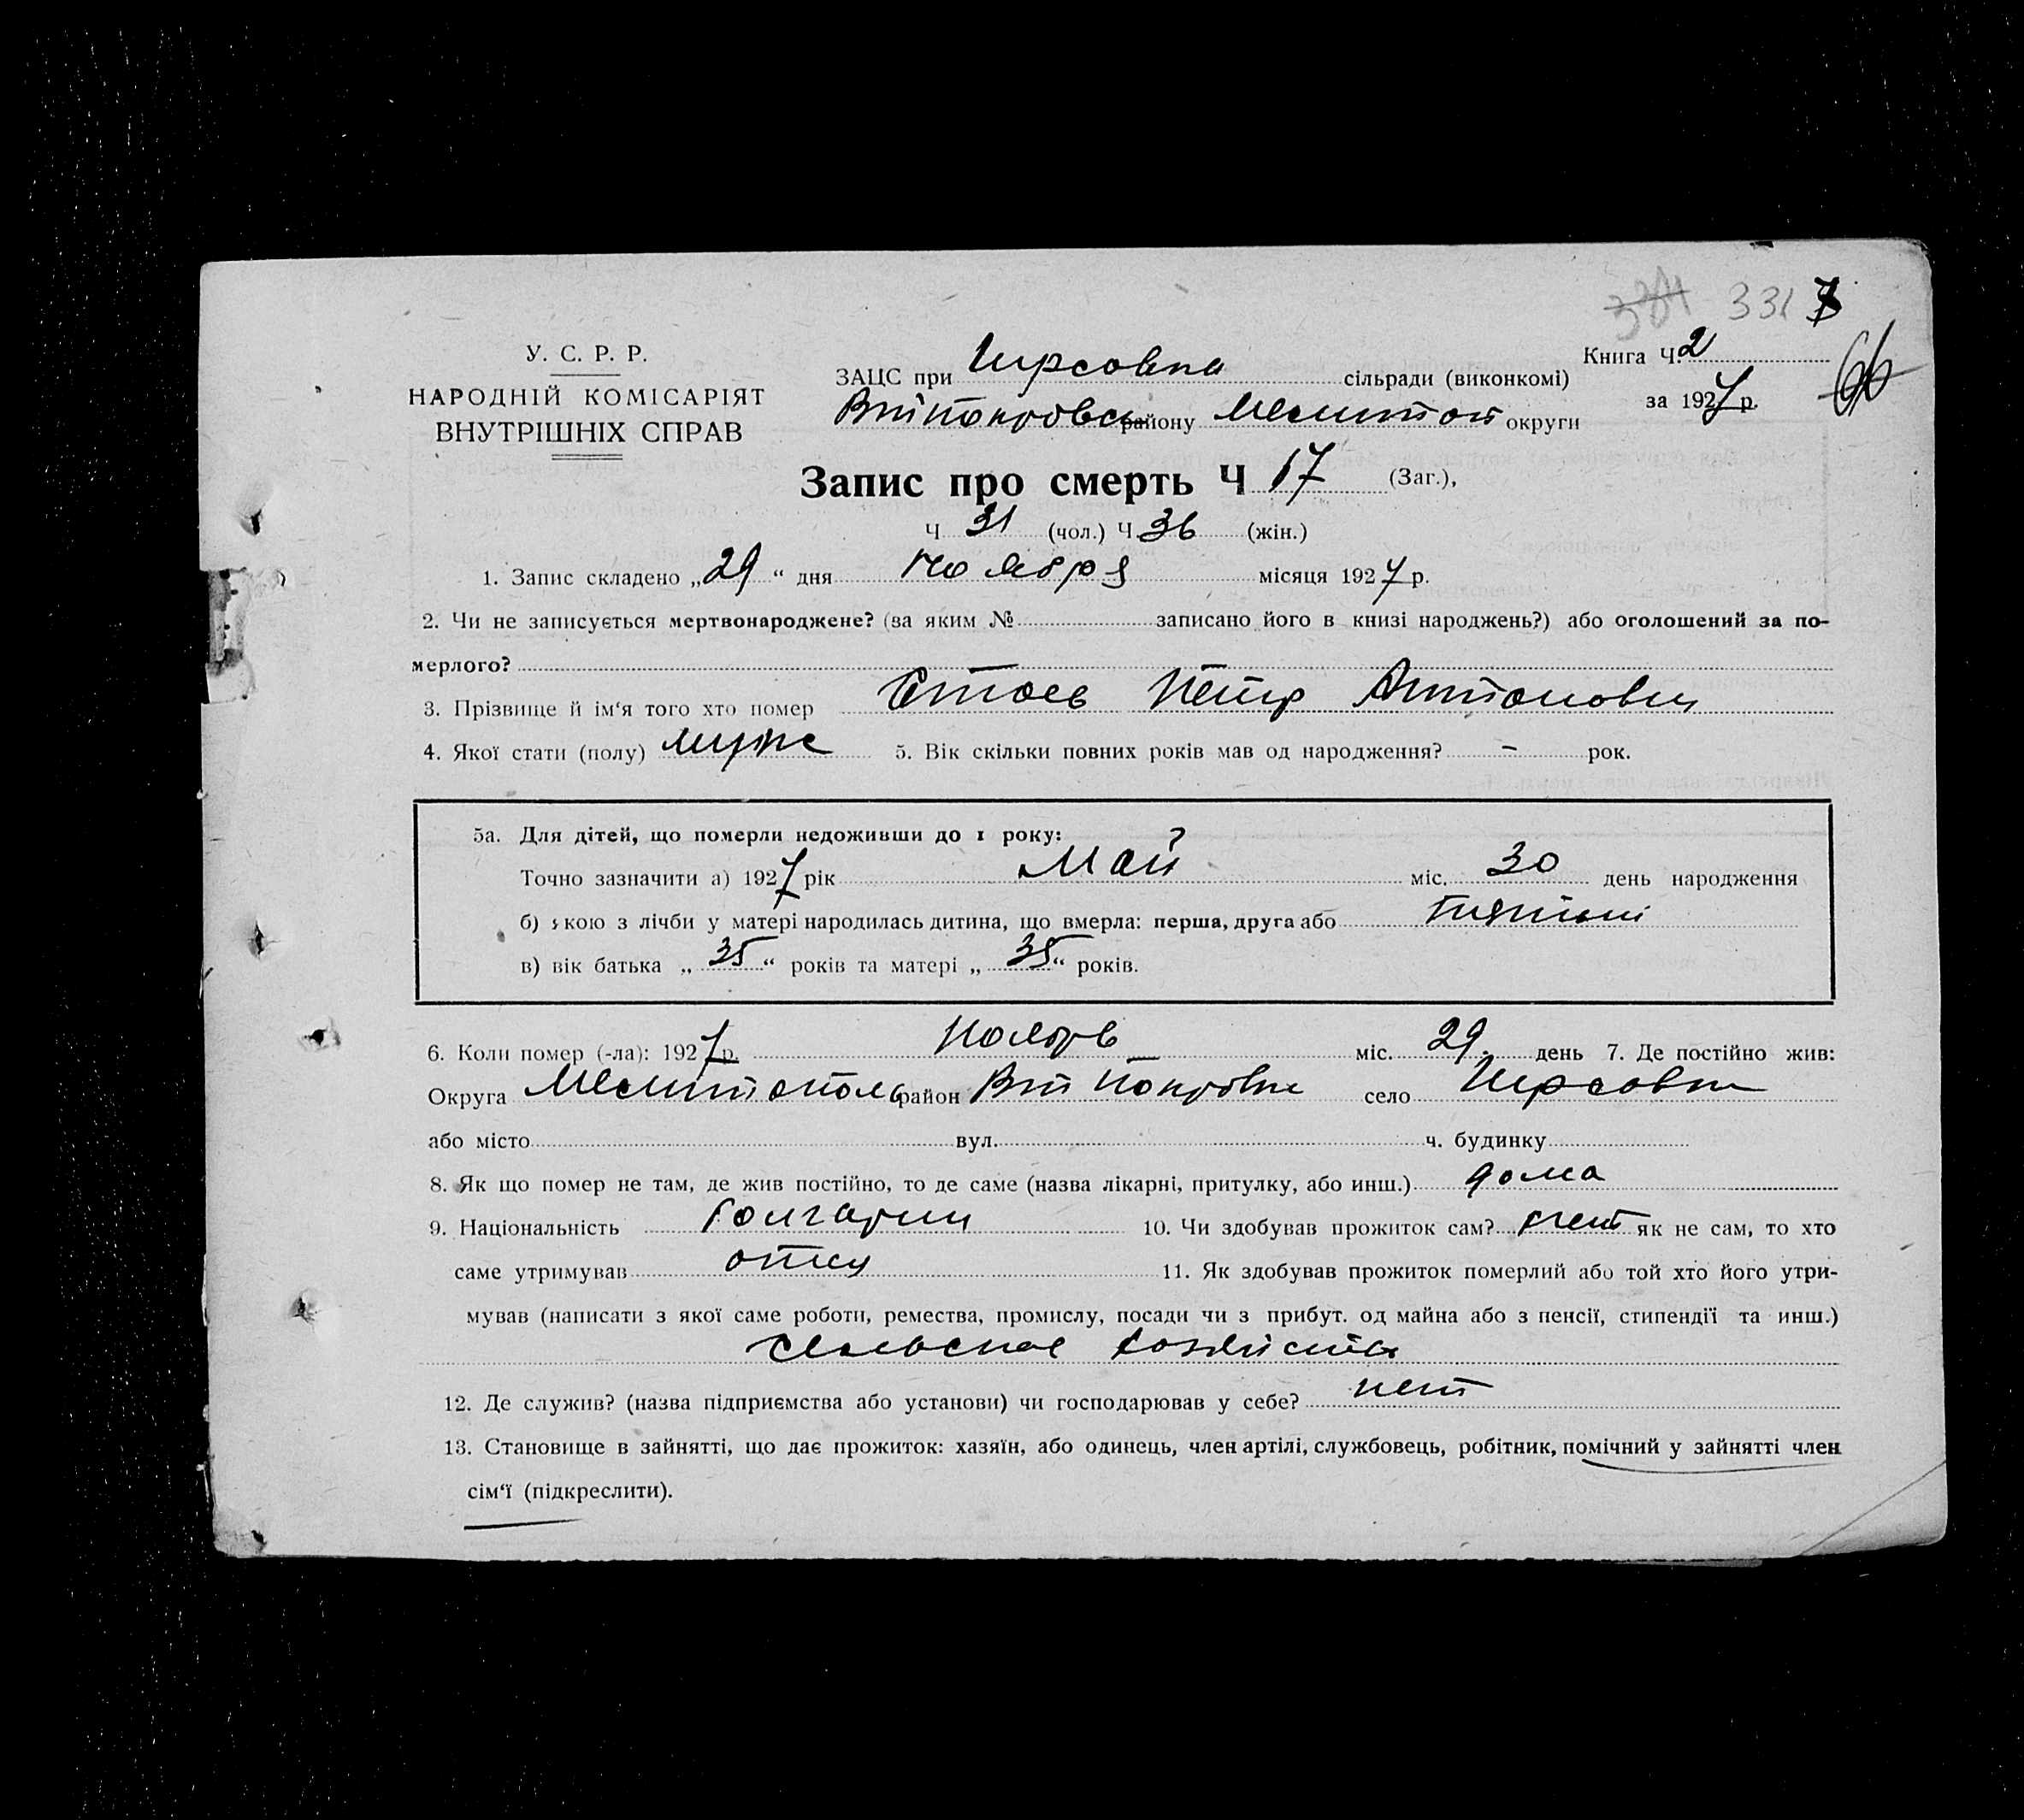 331
У. С. Р. Р.
НАРОДНІЙ КОМІСАРІЯТ
ВНУТРІШНІХ СПРАВ
ЗАЦС при Гирсовка сільради (виконкомі)
району Мелитоп округи
Книга Ч. 2
за 1927 р.
66
Запис про смерть Ч 17 (Заг.),
Ч 31 (чол.) Ч 36 (жін.)
1. Запис складено „29“ дня Ноября місяця 1927 р.
2. Чи не записується мертвонароджене? (за яким № записано його в книзі народжень?) або оголошений за по-
мерлого?
3. Прізвище й ім‘я того хто помер Стоев Петр Антонович
4. Якої стати (полу) мужс 5. Вік скільки повних років мав од народження? - рок.
5а. Для дітей, що померли недоживши до 1 року:
Точно зазначити а) 1927 рік Май міс. 30 день народження
б) якою з лічби у матері народилась дитина, що вмерла: перша, друга або
в) вік батька „35“ років та матері „35“ років.
6. Коли помер (-ла): 1927 р. Ноябрь міс. 29 день 7. Де постійно жив:
Округа Мелитополь район село Гирсовка
або місто вул. ч. будинку
8. Як що помер не там, де жив постійно, то де саме (назва лікарні, притулку, або инш.) дома
9. Національність болгарин 10. Чи здобував прожиток сам? як не сам, то хто
саме утримував отец 11. Як здобував прожиток померлий або той хто його утри-
мував (написати з якої саме роботи, ремества, промислу, посади чи з прибут. од майна або з пенсії, стипендії та инш.)
сельское хозяйство
12. Де служив? (назва підприємства або установи) чи господарював у себе? нет
13. Становище в зайнятті, що дає прожиток: хазяїн, або одинець, член артілі, службовець, робітник, помічний у зайнятті член
сім‘ї (підкреслити).